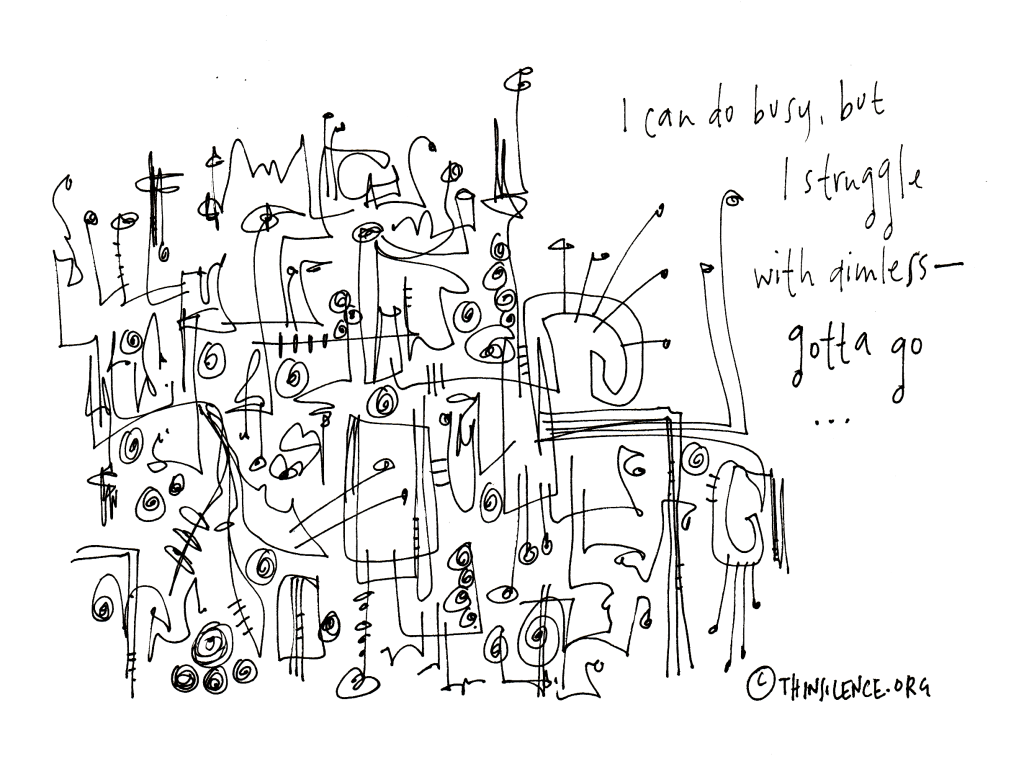 I can do busy, but
I struggle
with aimless—
gotta go
...
© THINSILENCE.ORG